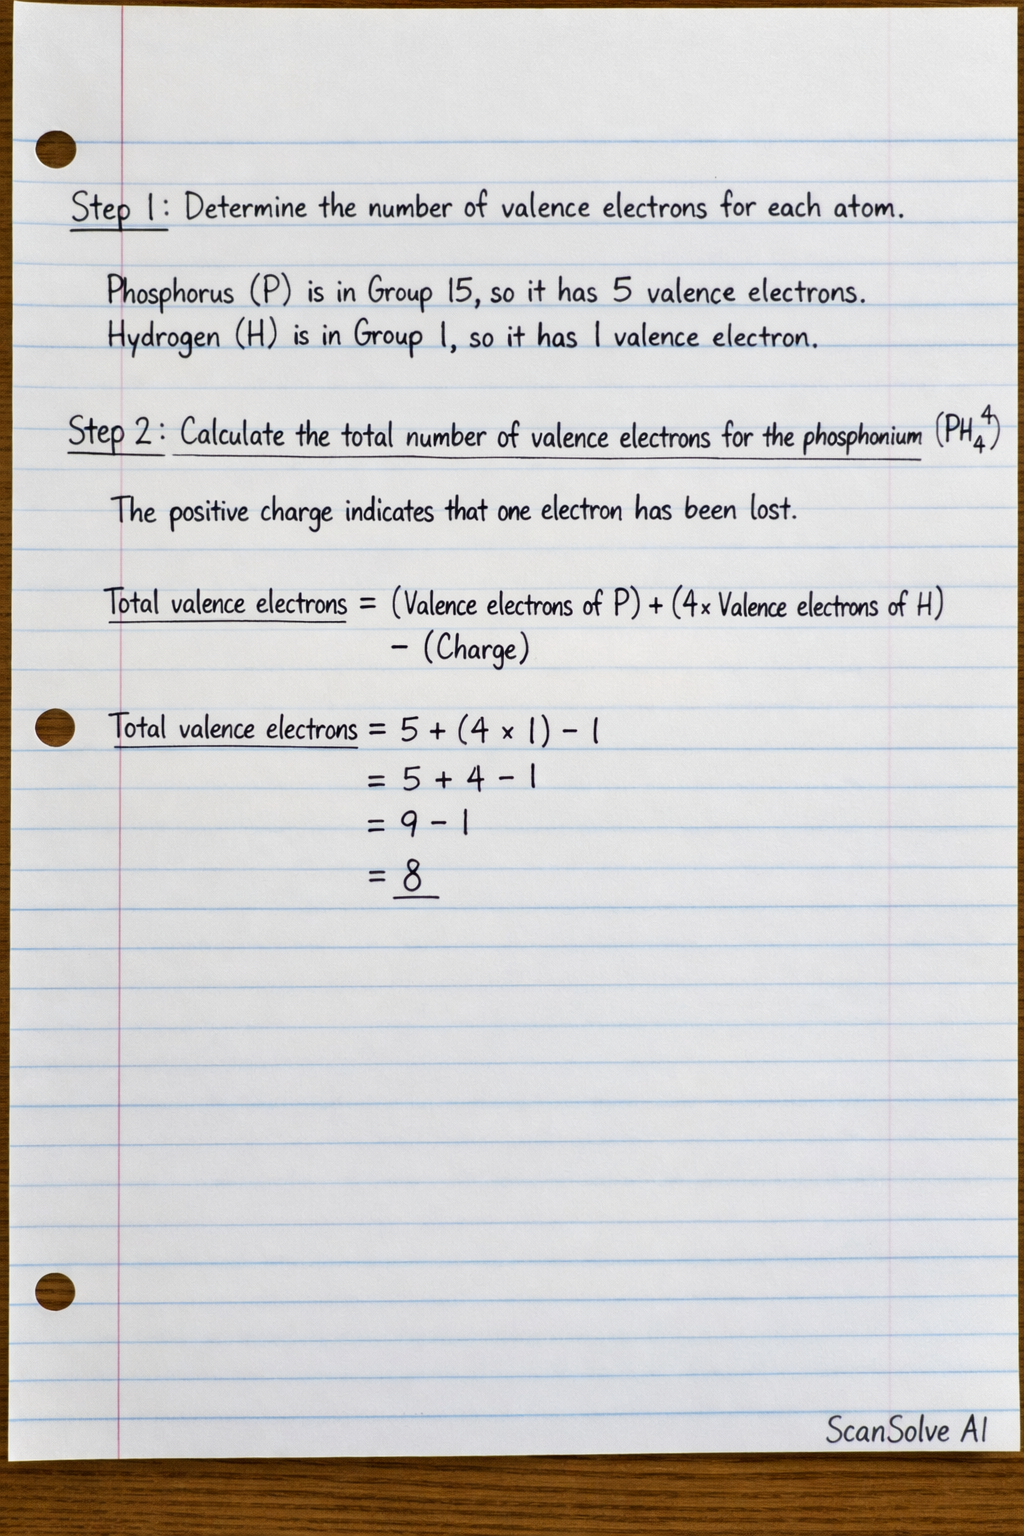 Step 1: Determine the number of valence electrons for each atom.
Phosphorus (P) is in Group 15, so it has 5 valence electrons.
Hydrogen (H) is in Group 1, so it has 1 valence electron.
Step 2: Calculate the total number of valence electrons for the phosphonium (PH₄⁴)
The positive charge indicates that one electron has been lost.
Total valence electrons = (Valence electrons of P) + (4× Valence electrons of H)
− (Charge)
Total valence electrons = 5 + (4 × 1) − 1
= 5 + 4 − 1
= 9 − 1
= 8
ScanSolve AI